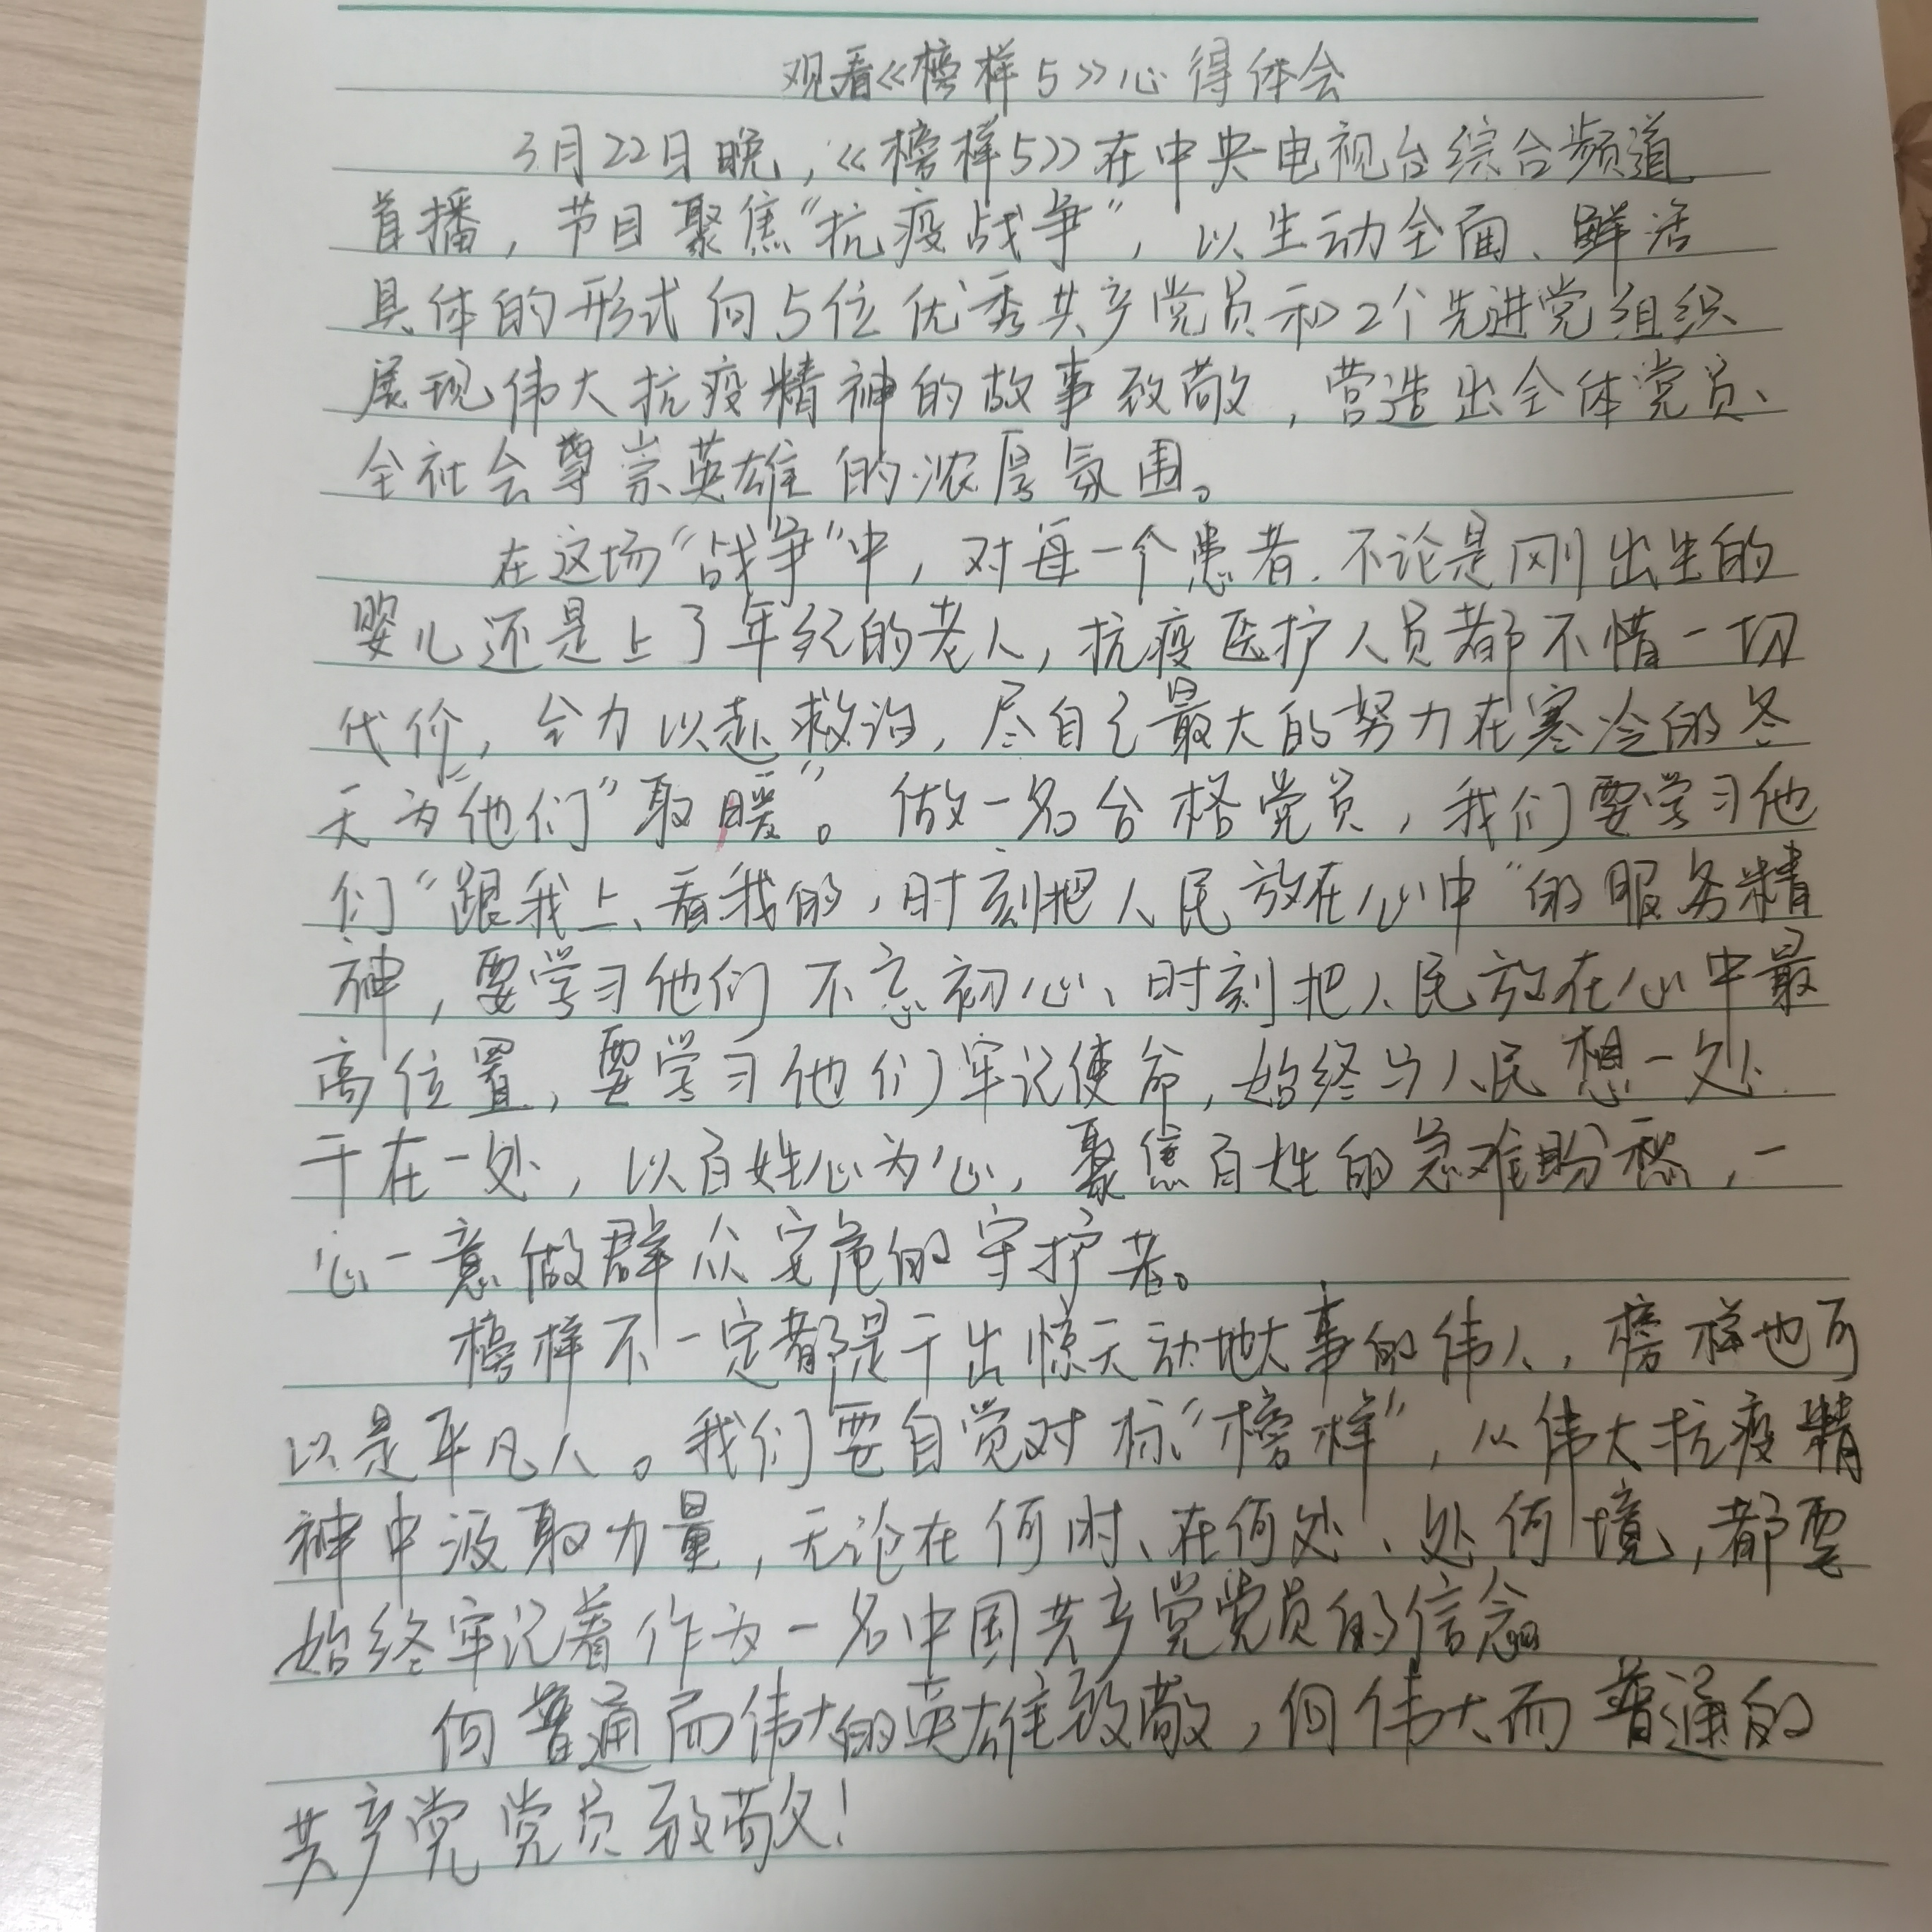 观看《榜样5》心得体会
3月22日晚，《榜样5》在中央电视台综合频道
首播，节目聚焦“抗疫战争”，以生动全面、鲜活
具体的形式向5位优秀共产党员和2个先进党组织
展现伟大抗疫精神的故事致敬，营造出全体党员、
全社会尊崇英雄的浓厚氛围。
在这场“战争”中，对每一个患者，不论是刚出生的
婴儿还是上了年纪的老人，抗疫医护人员都不惜一切
代价，全力以赴救治，尽自己最大的努力在寒冷的冬
天为他们“取暖”。做一名合格党员，我们要学习他
们“跟我上、看我的，时刻把人民放在心中”的服务精
神，要学习他们不忘初心、时刻把人民放在心中最
高位置，要学习他们牢记使命，始终与人民想一处
干在一处，以百姓心为心，聚焦百姓的急难盼愁，一
心一意做群众安危的守护者。
榜样不一定都是干出惊天动地大事的伟人，榜样也可
以是平凡人。我们要自觉对标“榜样”，从伟大抗疫精
神中汲取力量，无论在何时、在何处、处何境，都要
始终牢记着作为一名中国共产党党员的信念。
向普通而伟大的英雄致敬，向伟大而普通的
共产党党员致敬！